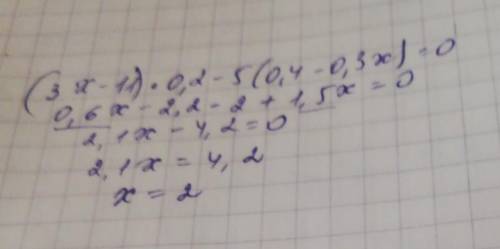 (3x-11)·0,2-5(0,4-0,3x)=0
0,6x-2,2-2+1,5x=0
2,1x-4,2=0
2,1x=4,2
x=2